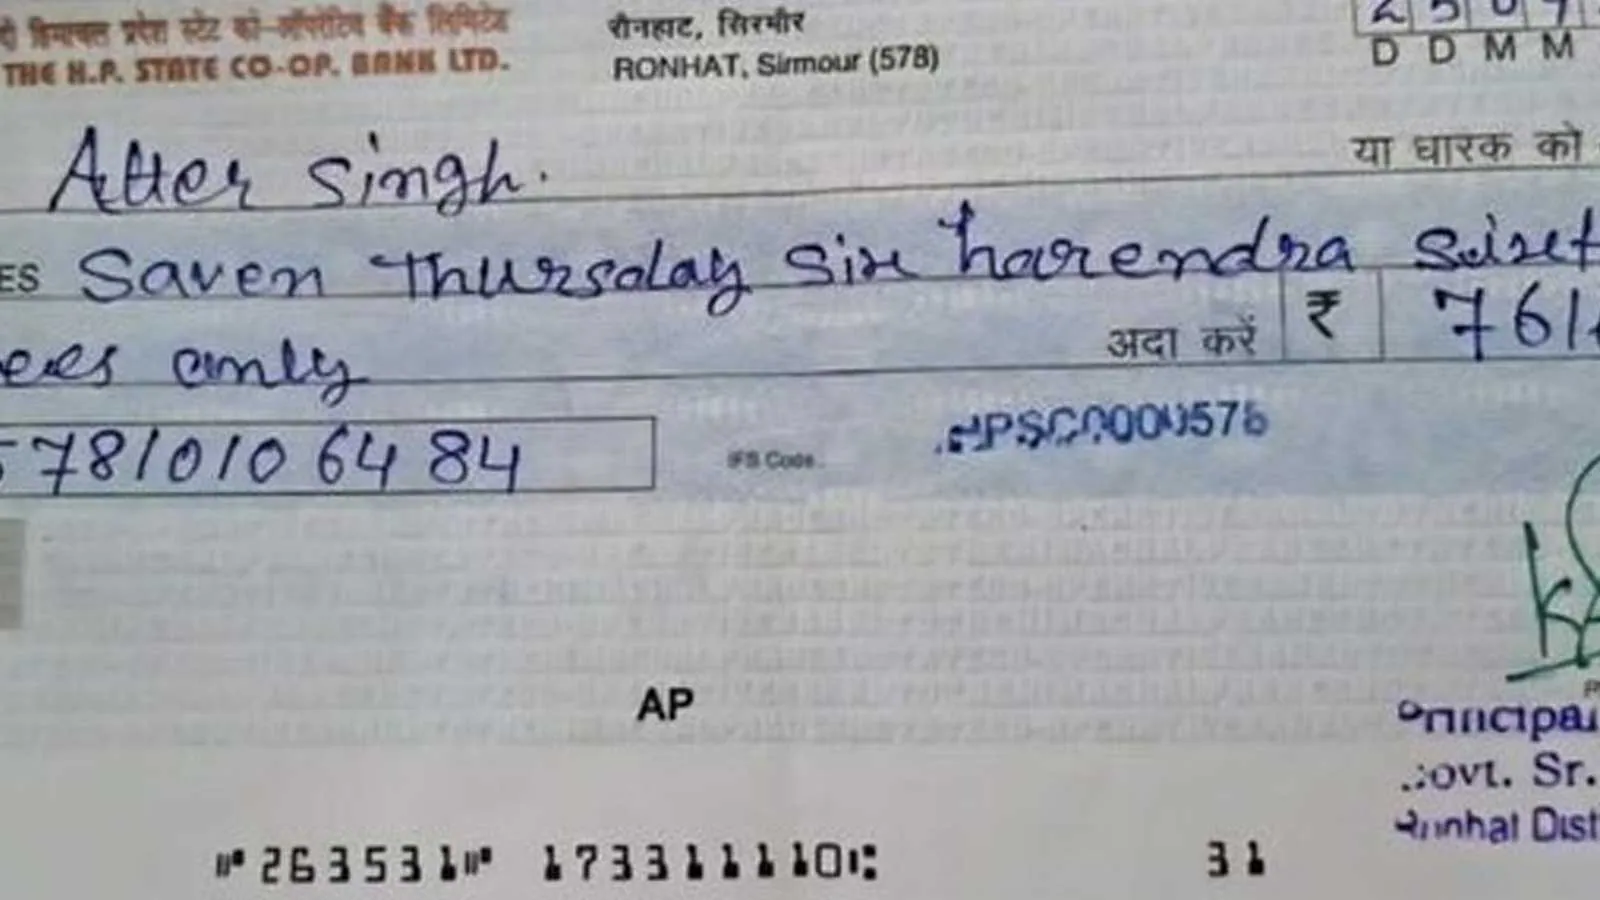 दी हिमाचल प्रदेश स्टेट को-ऑपरेटिव बैंक लिमिटेड
THE H.P. STATE CO-OP. BANK LTD.
रौनहाट, सिरमौर
RONHAT, Sirmour (578)
D D M M
Atter Singh.
या धारक को
ES Saven Thursday Six harendra
अदा करें ₹ 761
only
7810106484
IFS Code.
HPSC0000578
AP
Principal
Govt. Sr.
Ronhat Dist
263531 173311110 31